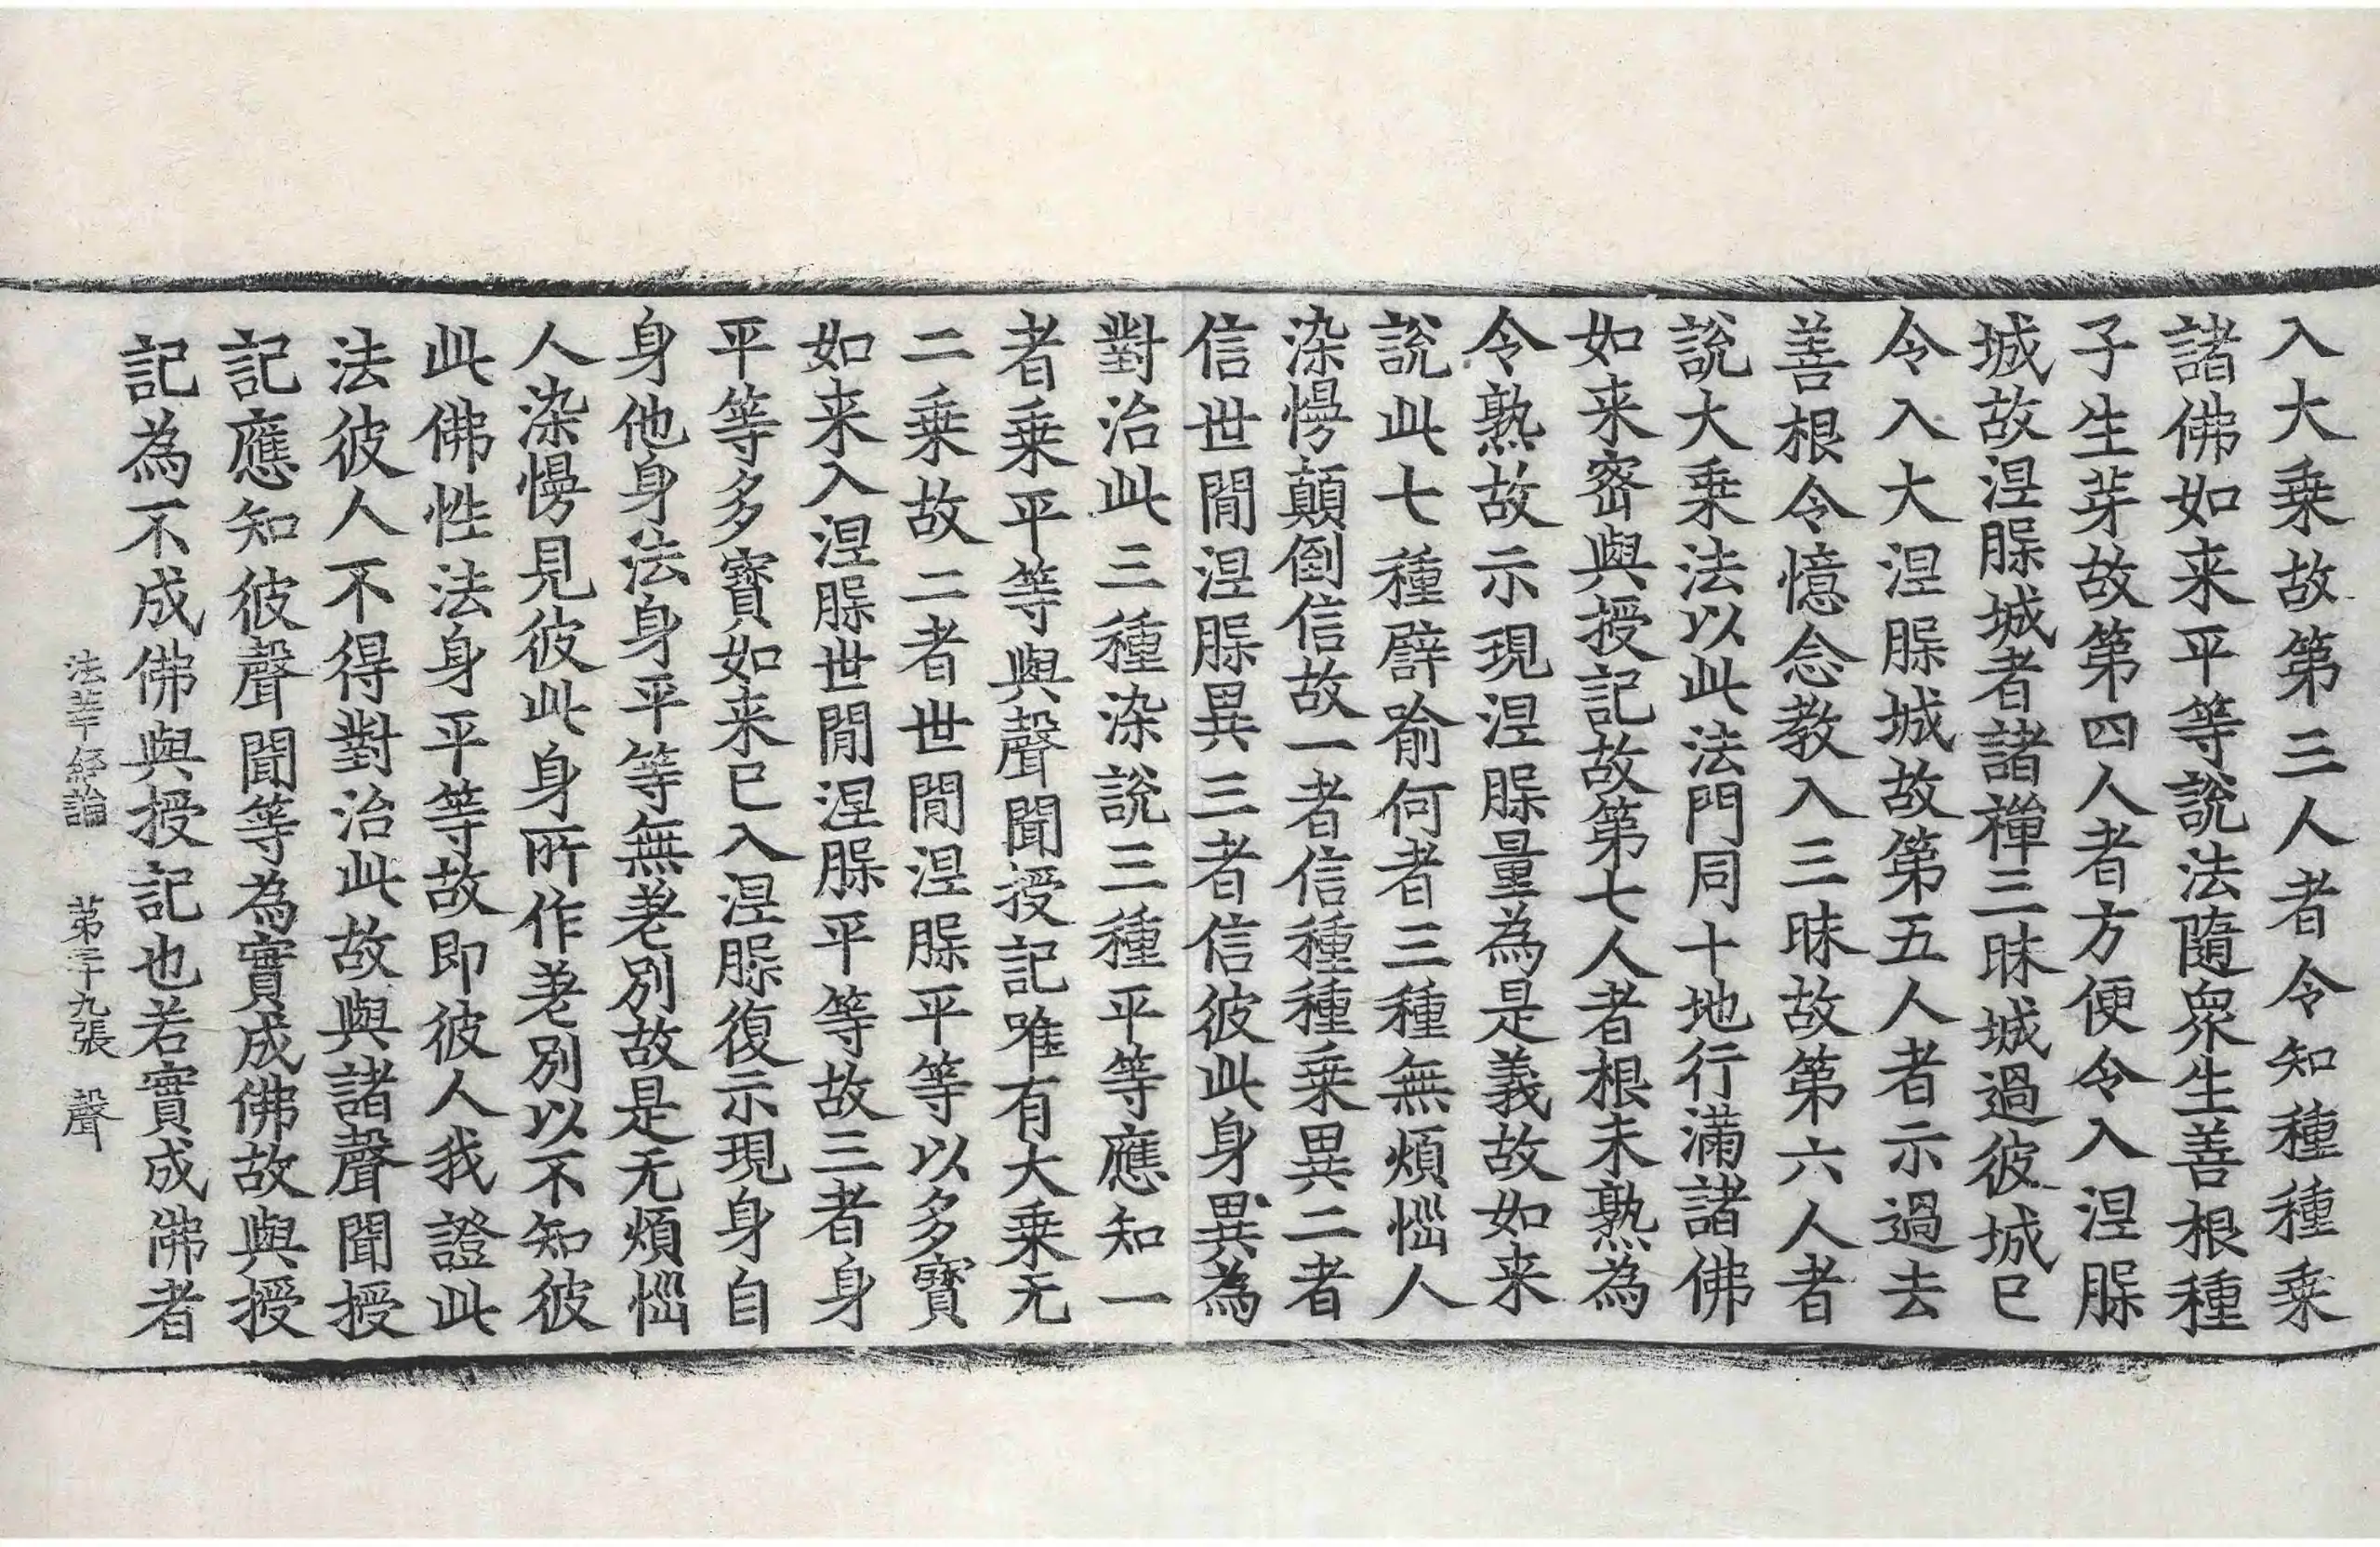 入大乗故第三人者令知種種乗
諸佛如来平等說法隨衆生善根種
子生芽故第四人者方便令入涅䏶
城故涅䏶城者諸禪三昧城過彼城已
令入大涅䏶城故第五人者示過去
善根令憶念教入三昧故第六人者
說大乗法以此法門同十地行滿諸佛
如来宻與授記故第七人者根未熟為
令熟故示現涅䏶量為是義故如来
說此七種譬喻何者三種無煩惱人
染慢顛倒信故一者信種種乗異二者
信世閒涅䏶異三者信彼此身異為
對治此三種染說三種平等應知一
者乗平等與聲聞授記唯有大乗无
二乗故二者世閒涅䏶平等以多寶
如来入涅䏶世閒涅䏶平等故三者身
平等多寶如来已入涅䏶復示現身自
身他身法身平等無差別故是无煩惱
人染慢見彼此身所作差別以不知彼
此佛性法身平等故即彼人我證此
法彼人不得對治此故與諸聲聞授
記應知彼聲聞等為實成佛故與授
記為不成佛與授記也若實成佛者
法華經論 第二十九張 聲